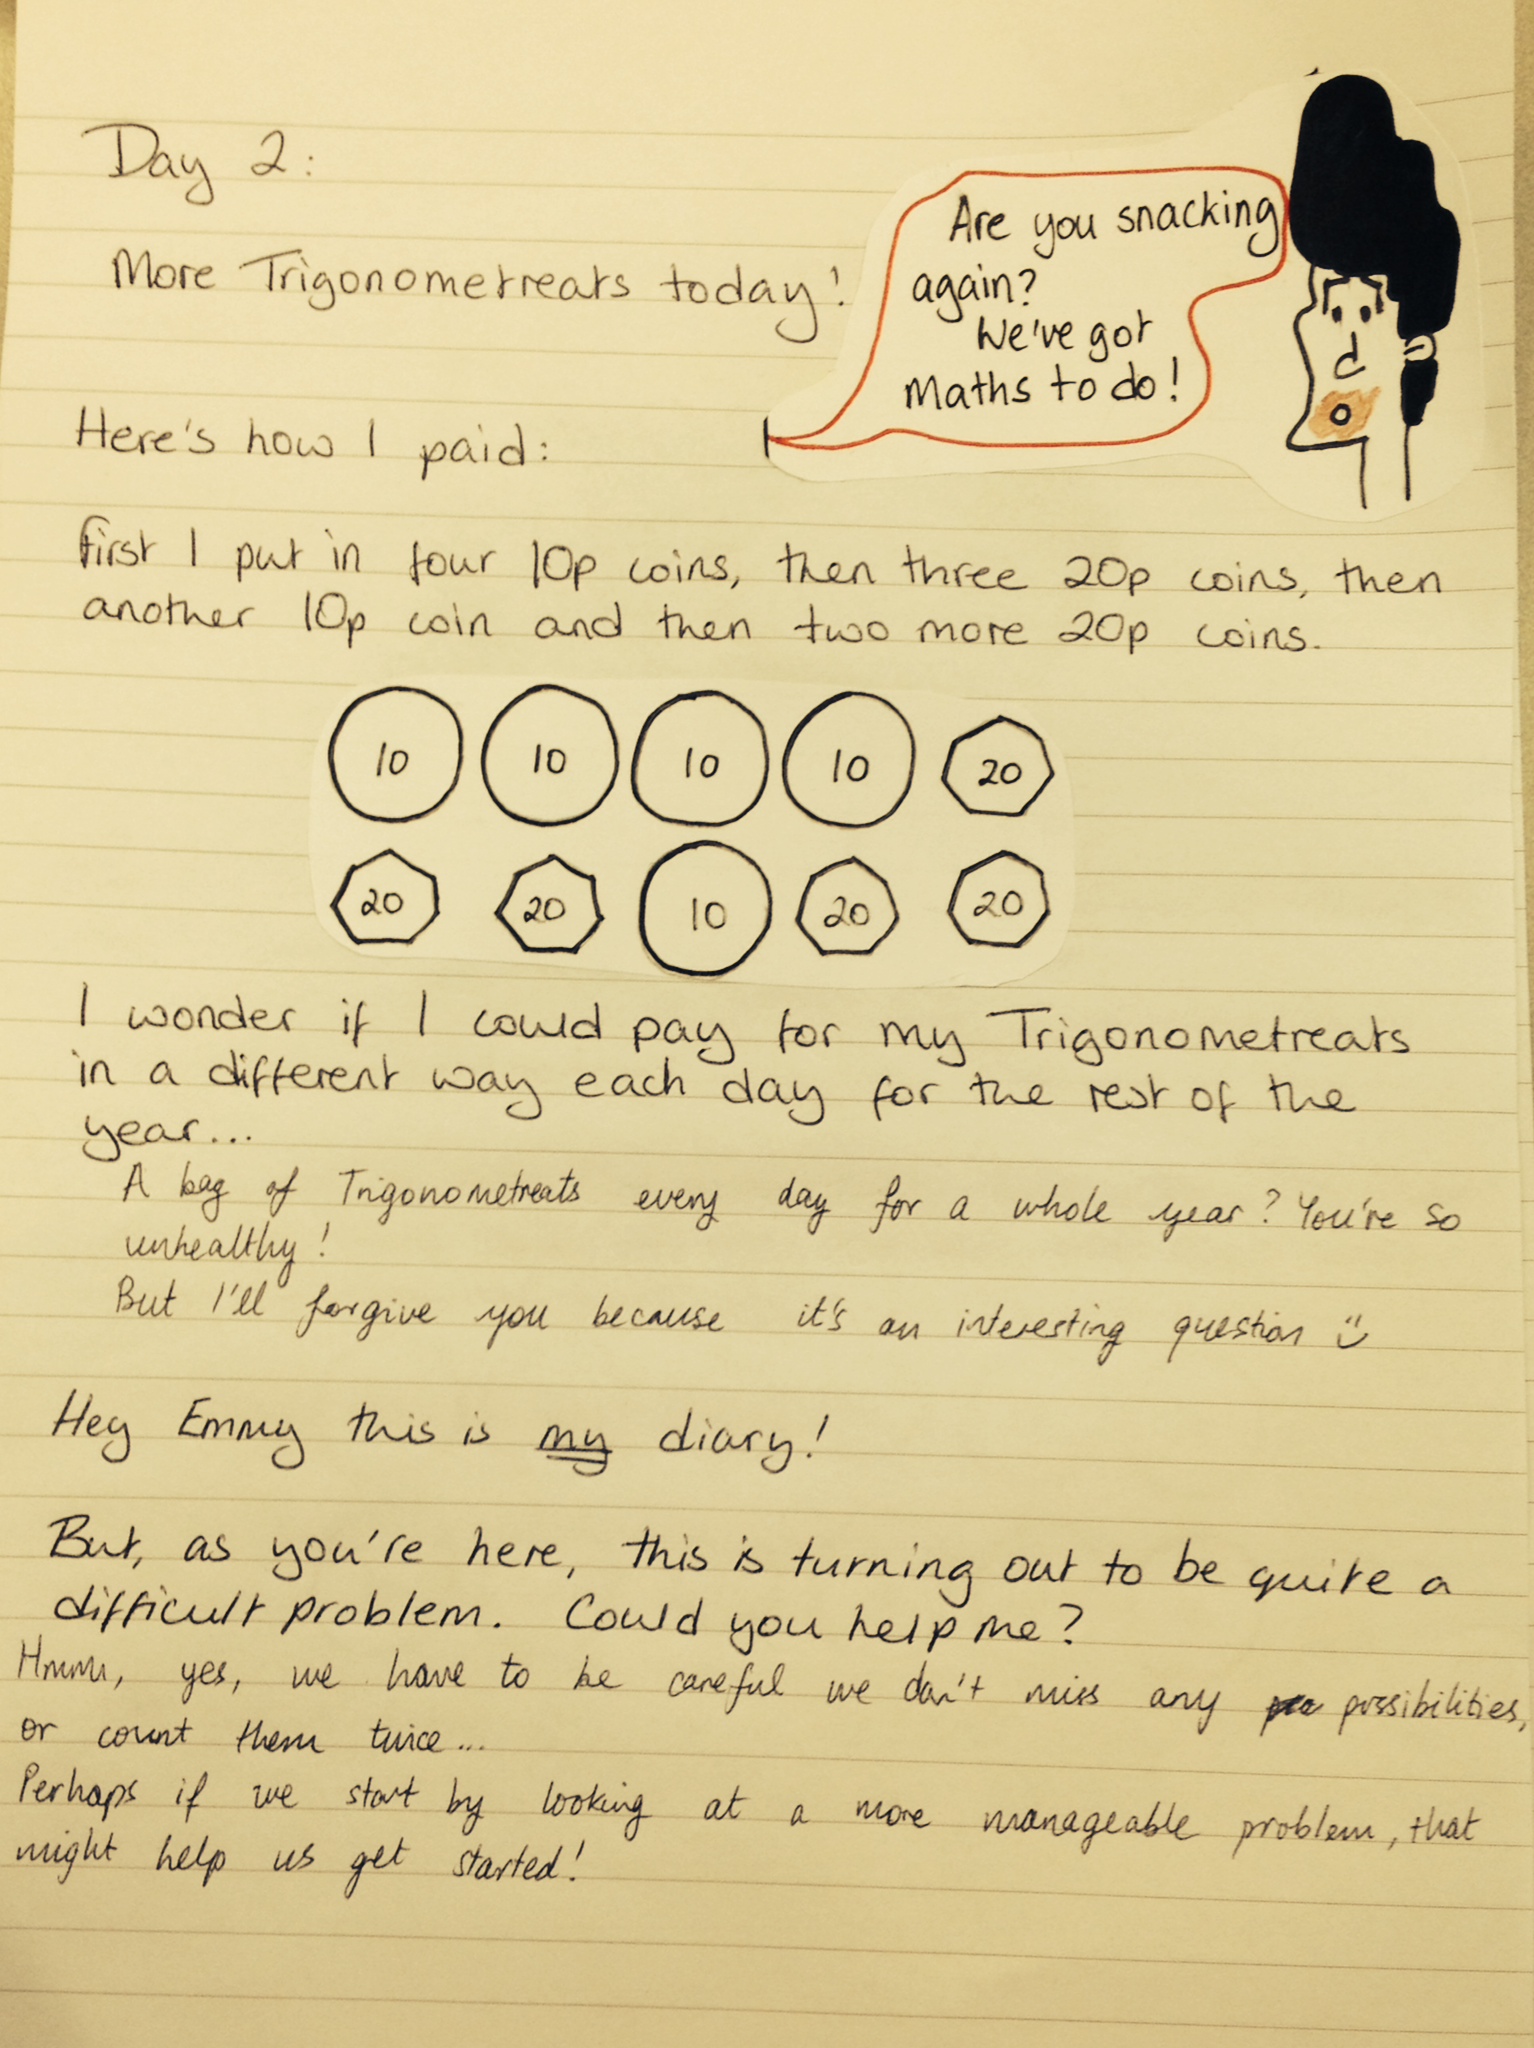 Day 2:
More Trigonometreats today!
Are you snacking
again?
We've got
Maths to do!
Here's how I paid:
First I put in four 10p coins, then three 20p coins, then
another 10p coin and then two more 20p coins.
10 10 10 10 20
20 20 10 20 20
I wonder if I could pay for my Trigonometreats
in a different way each day for the rest of the
year...
A bag of Trigonometreats every day for a whole year? You're so
unhealthy!
But I'll forgive you because it's an interesting question
Hey Emmy this is my diary!
But, as you're here, this is turning out to be quite a
difficult problem. Could you help me?
Hmmm, yes, we have to be careful we don't miss any possibilities,
or count them twice...
Perhaps if we start by looking at a more manageable problem, that
might help us get started!